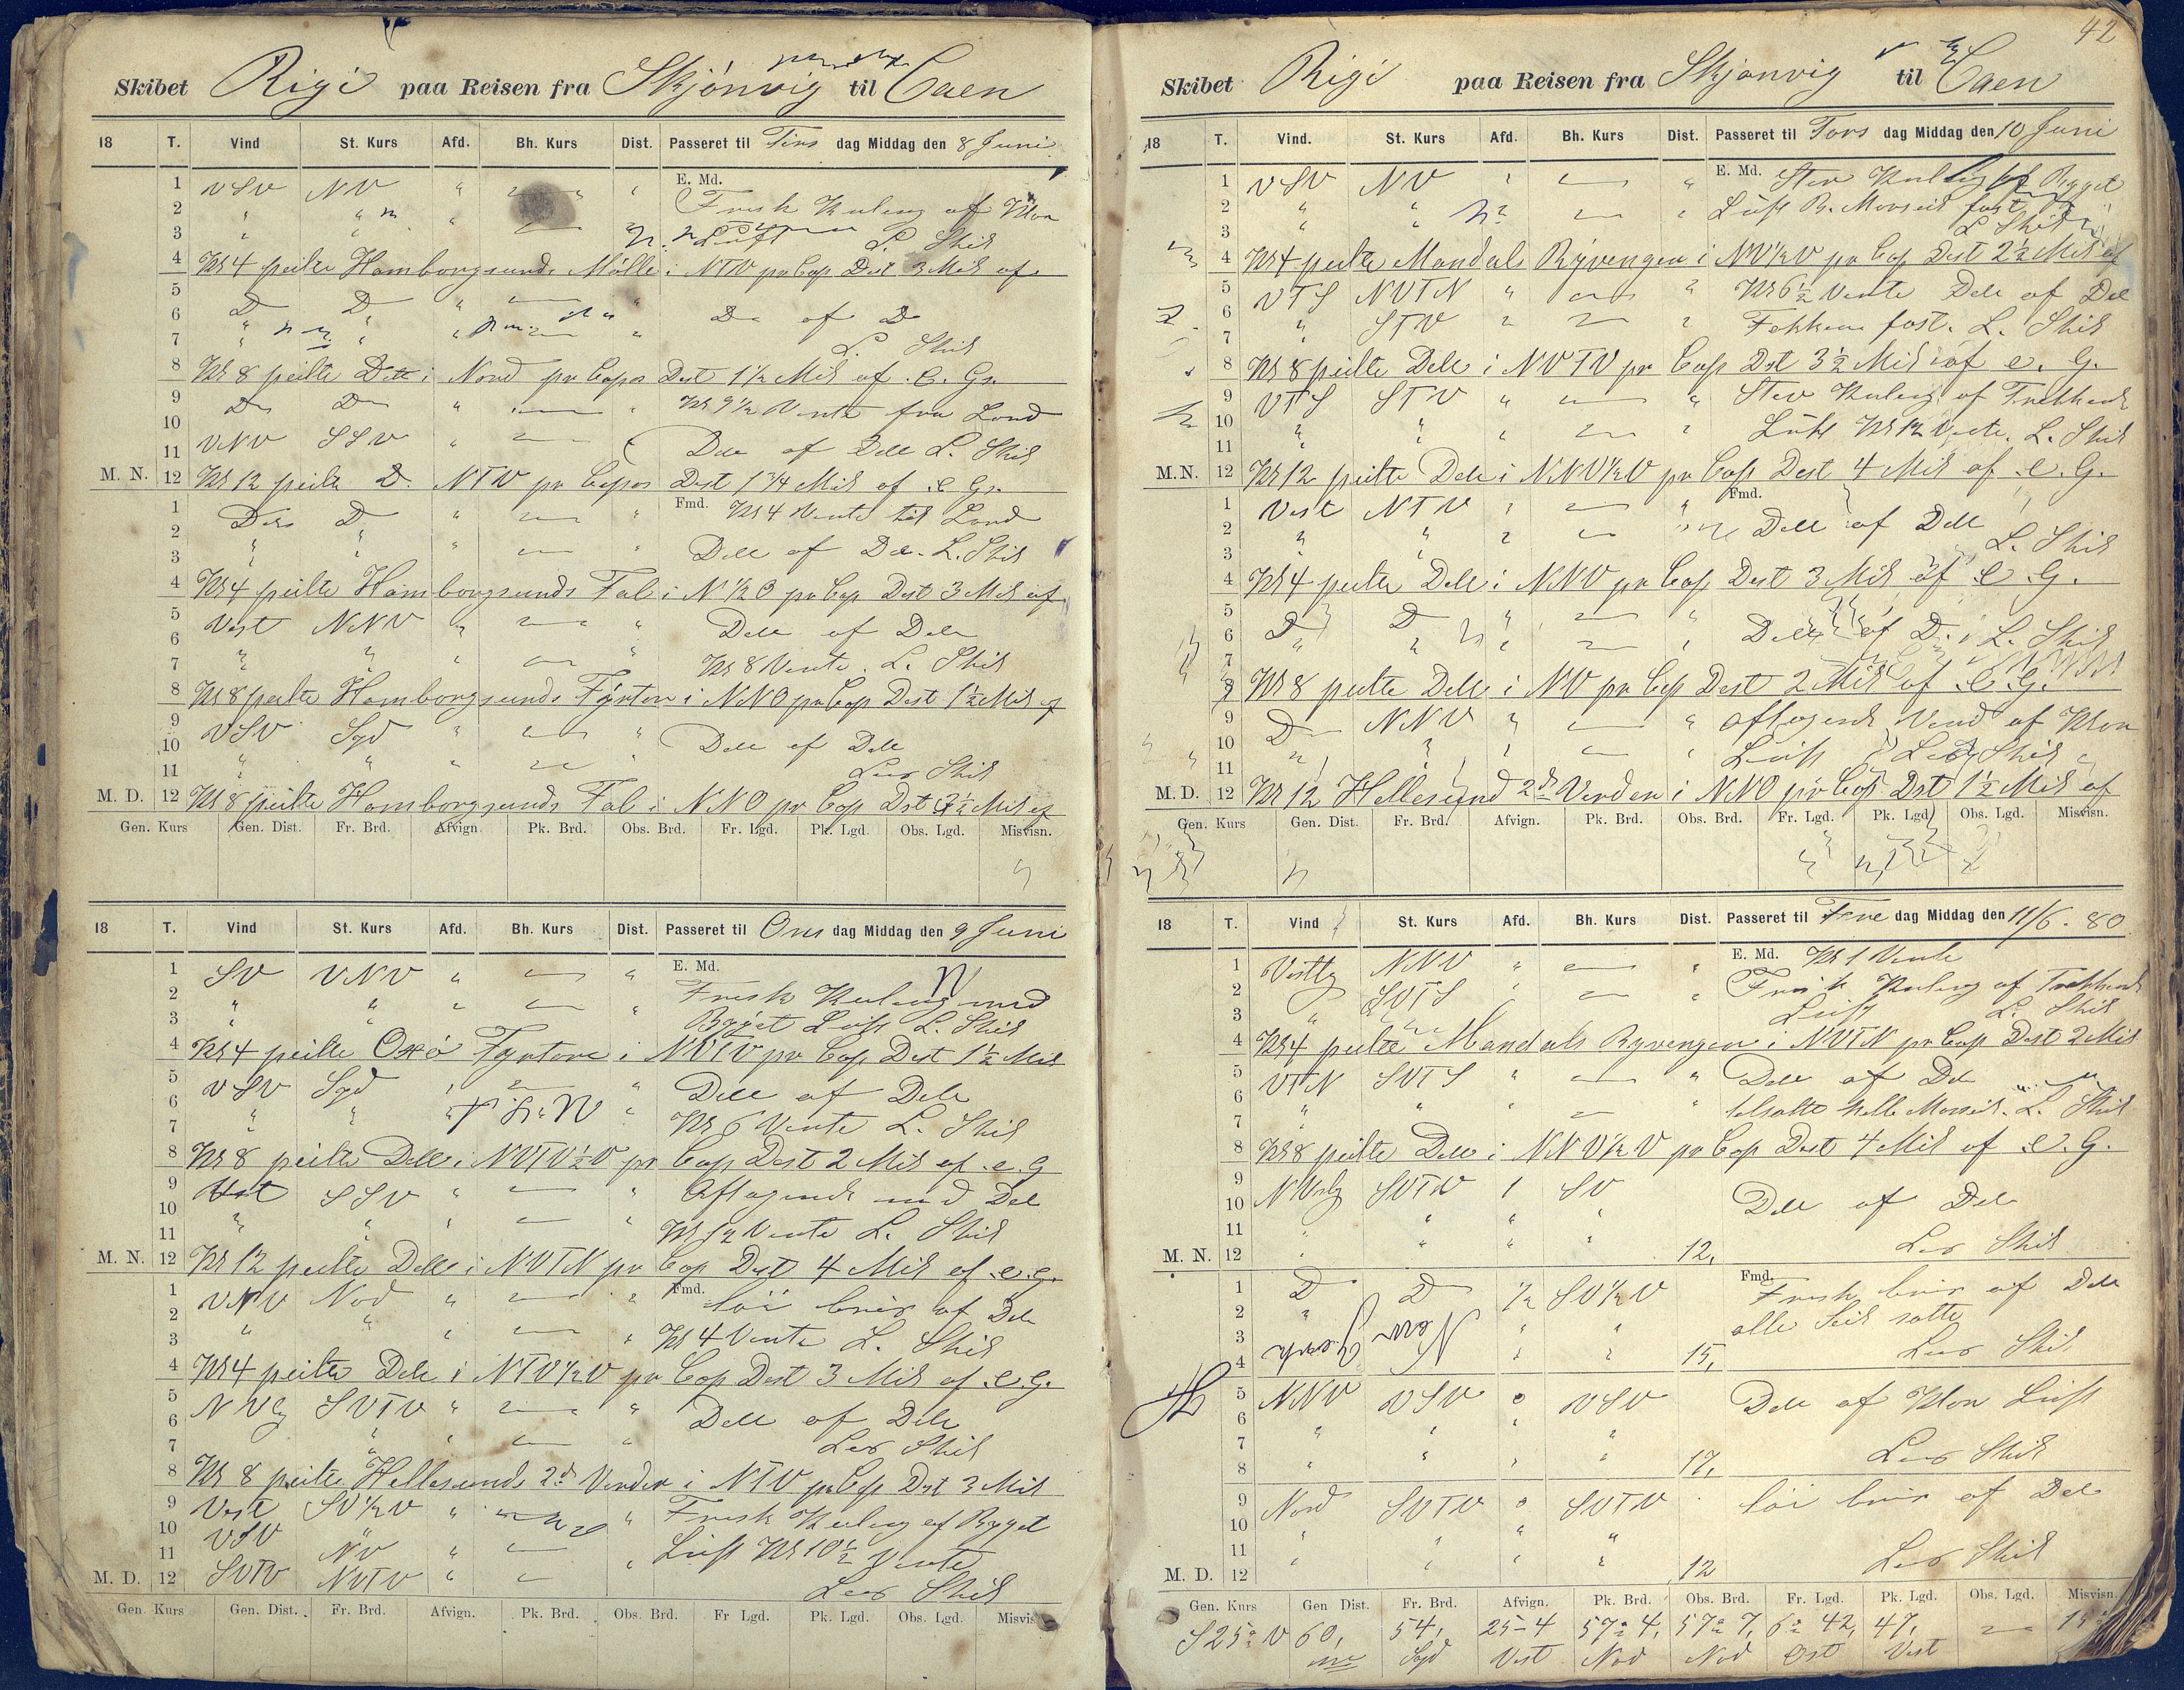 Skibet Rigi paa Reisen fra Skjönvig til Caen
18 T. Vind St. Kurs Afd. Bh. Kurs Dist. Passeret til Tirs dag Middag den 8 Juni
E. Md.
1 VSV NV
2 Frisk Kuling af Klar
3 Luft L. Skib
4 Kl 4 peilte Homborgsunds Mölle i NTV pr Cop Dist 3 Mil af
5 D D
6 D af D
7 L. Skib
8 Kl 8 peilte Dtte i Nord pr Copas Dist 1½ Mil af e. G.
9 D D Kl 9½ Vente fra Land
10
11 VNV SSV Dtte af Dtte L. Skib
M. N. 12 Kl 12 peilte D. NTV pr Copas Dist 1¾ Mil af e G.
1 Fmd. Kl 4 Vente til Land
2 D
3 Dtte af Dtte L. Skib
4 Kl 4 peilte Homborgsunds Fal i N½O pr Cop Dist 3 Mil af
5 Vest NNV
6 Dtte af Dtte
7 Kl 8 Vente L. Skib
8 Kl 8 peilte Homborgsunds Fyrtøn i NNO pr Cop Dist 1½ Mil af
9 VSV Syd
10 Dtte af Dtte
11 Lens Skib
M. D. 12 Kl 8 peilte Homborgsunds Fal i NNO pr Cop Dist Mil af
Gen. Kurs Gen. Dist. Fr. Brd. Afvign. Pk. Brd. Obs. Brd. Fr. Lgd. Pk. Lgd. Obs. Lgd. Misvisn.
18 T. Vind St. Kurs Afd. Bh. Kurs Dist. Passeret til Ons dag Middag den 9 Juni
E. Md.
1 SV VNV
2 Frisk Kuling med
3 Byget Luft L. Skib
4 Kl 4 peilte Oxö Fyrtøn i NVTV pr Cop Dist 1½ Mil
5 VSV Syd
6 Dtte af Dtte
7 Kl 6 Vente L. Skib
8 Kl 8 peilte Dtte i NVTV½V pr Cop Dist 2 Mil af e. G
9 Vest SSV Aftagende med Dtte
10
11 Kl 12 Vente L. Skib
M. N. 12 Kl 12 peilte Dtte i NVTN pr Cop Dist 4 Mil af e. G.
1 VNV Nod Fmd. löi bris af Dtte
2
3 Kl 4 Vente L. Skib
4 Kl 4 peilte Dtte i NTV½V pr Cop Dist 3 Mil af e. G.
5 NVlg SVTV
6 Dtte af Dtte
7 Lens Skib
8 Kl 8 peilte Hellesunds 2d Verder i NTV pr Cop Dist 3 Mil
9 Vest SV½V Frisk Kuling af Byget
10 VSV NV
11 Luft Kl 10½ Vente
M. D. 12 SVTV NVTV Lens Skib
Gen. Kurs Gen. Dist. Fr. Brd. Afvign. Pk. Brd. Obs. Brd. Fr Lgd. Pk. Lgd. Obs. Lgd. Misvis
42
Skibet Rigi paa Reisen fra Skjönvig til Caen
18 T. Vind. St. Kurs Afd. Bh. Kurs Dist. Passeret til Tors dag Middag den 10 Juni
1 VSV NV E. Md. Stev Kuling af Byget
2 Luft B. Mersseil fast
3 L. Skib
4 Kl 4 peilte Mandals Ryvengen i NV½V pr Cop Dist 2½ Mil af
5 VTS NVTN Kl 6½ Vente Dtte af Dtte
6 STV
7 Fokken fast. L. Skib
8 Kl 8 peilte Dtte i NVTV pr Cop Dist 3½ Mil af e. G.
9 VTS STV Stev Kuling af Trekkende
10
11 Luft Kl 12 Vente. L. Skib
M. N. 12 Kl 12 peilte Dtte i NNV½V pr Cop Dist 4 Mil af e. G.
Fmd.
1 Vest NTV
2 Dtte af Dtte
3 L. Skib
4 Kl 4 peilte Dtte i NNV pr Cop Dist 3 Mil af e. G.
5 D D
6 Dtte af D. L. Skib
7
8 Kl 8 peilte Dtte i NV pr Cop Dist 2 Mil af e. G.
9 D NNV aftagende Vind af Klar
10 Luft Skib
11
M. D. 12 Kl 12 Hellesund 2d Verden i NNO pr Cop Dist 1½ Mil af
Gen. Kurs Gen. Dist. Fr. Brd. Afvign. Pk. Brd. Obs. Brd. Fr. Lgd. Pk. Lgd. Obs. Lgd. Misvisn.
18 T. Vind St. Kurs Afd. Bh. Kurs Dist. Passeret til Fre dag Middag den 11/6. 80
E. Md. Kl 1 Vente
1 Vestlg NNV
2 SVTS Frisk Kuling af Trekkende
3 Luft L. Skib
4 Kl 4 peilte Mandals Ryvengen i NVTN pr Cop Dist 2 Mil
5 VTN SVTS Dtte af Dtte
6
7 tilsatte Mersseil. L. Skib
8 Kl 8 peilte Dtte i NNV½V pr Cop Dist 4 Mil af e. G.
9 NVestlg SVTV 1 SV
10 Dtte af Dtte
11
M. N. 12 12, Lens Skib
Fmd.
1 D D ½ SV½V Frisk bris af Dtte
2 alle Seil satte
3
4 15, Lens Skib
5 NNV VSV 0 VSV Dtte af Klar Luft
6
7
8 17, Lens Skib
9 Nord SVTV 0 SVTV löi bris af Dtte
10
11
M. D. 12 12 Lens Skib
Gen. Kurs Gen Dist. Fr. Brd. Afvign. Pk. Brd. Obs. Brd. Fr. Lgd. Pk. Lgd. Obs. Lgd. Misvisn.
S25°V 60, 54, 25-4 57° 4, 57° 7, 6° 42, 47,
Syd Vest Nod Nod Ost Vest